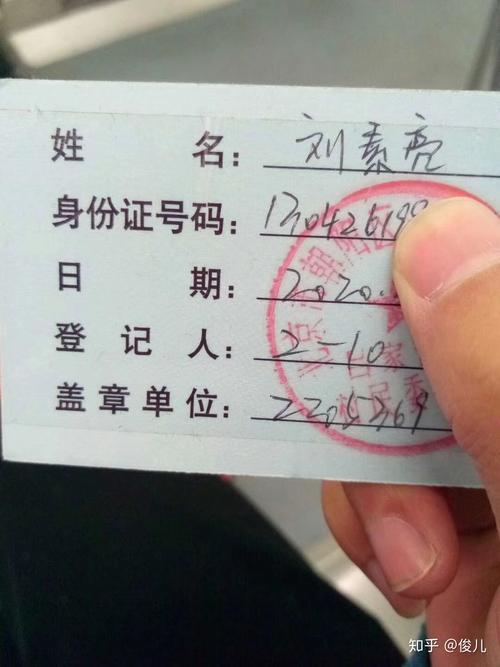 姓 名： 刘素亮
身份证号码： 130426199
日 期： 2020.
登 记 人： 2-10
盖章单位： 2205369
知乎 @俊儿